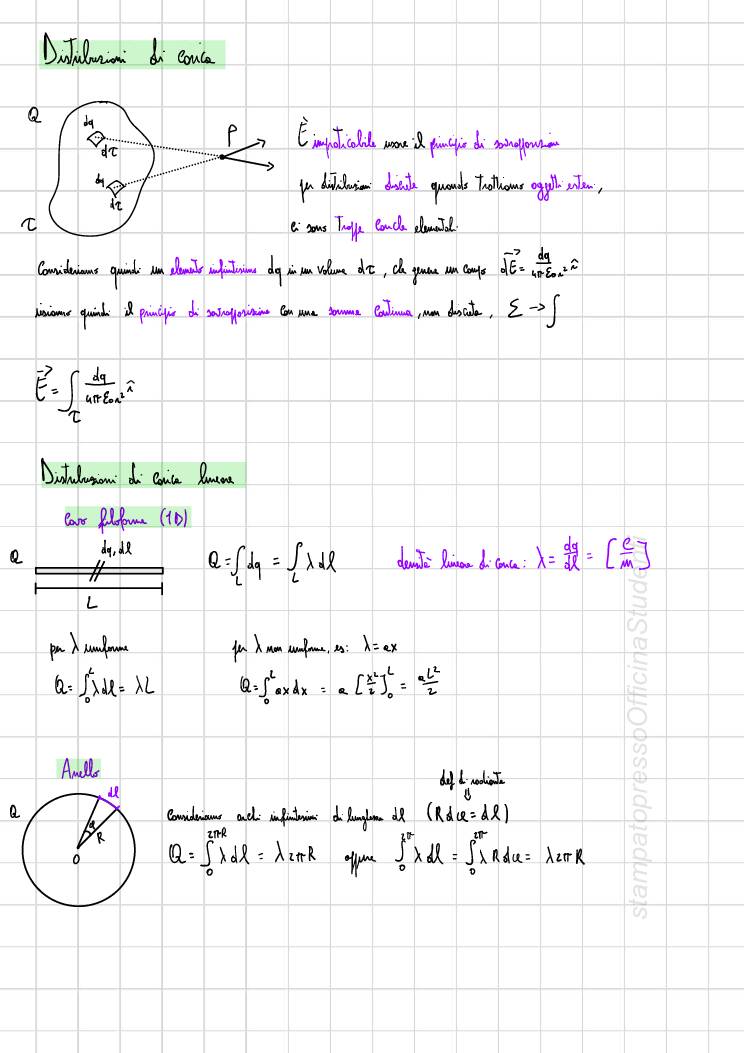 Distribuzioni di carica
Q
dq
dτ
P
dq
dτ
τ
È impraticabile usare il principio di sovrapposizione
per distribuzioni discrete quando trattiamo oggetti estesi,
ci sono troppe cariche elementari.
Consideriamo quindi un elemento infinitesimo dq in un volume dτ, che genera un campo dE⃗ = dq/4πε₀r² r̂
usiamo quindi il principio di sovrapposizione con una somma continua, non discreta, Σ → ∫
E⃗ = ∫_τ dq/4πε₀r² r̂
Distribuzioni di carica lineare
cavo filoforme (1D)
Q
dq, dl
L
Q = ∫_L dq = ∫_L λ dl
densità lineare di carica: λ = dq/dl = [C/m]
per λ uniforme
per λ non uniforme, es: λ = ax
Q = ∫₀^L λ dl = λL
Q = ∫₀^L ax dx = a [x²/2]₀^L = aL²/2
Anello
Q
dl
R
O
def di radiante
⇓
Consideriamo archi infinitesimi di lunghezza dl (R dφ = dl)
Q = ∫₀^2πR λ dl = λ2πR oppure ∫₀^2π λ dl = ∫₀^2π λ R dφ = λ2πR
stampatopressoOfficinaStudenti